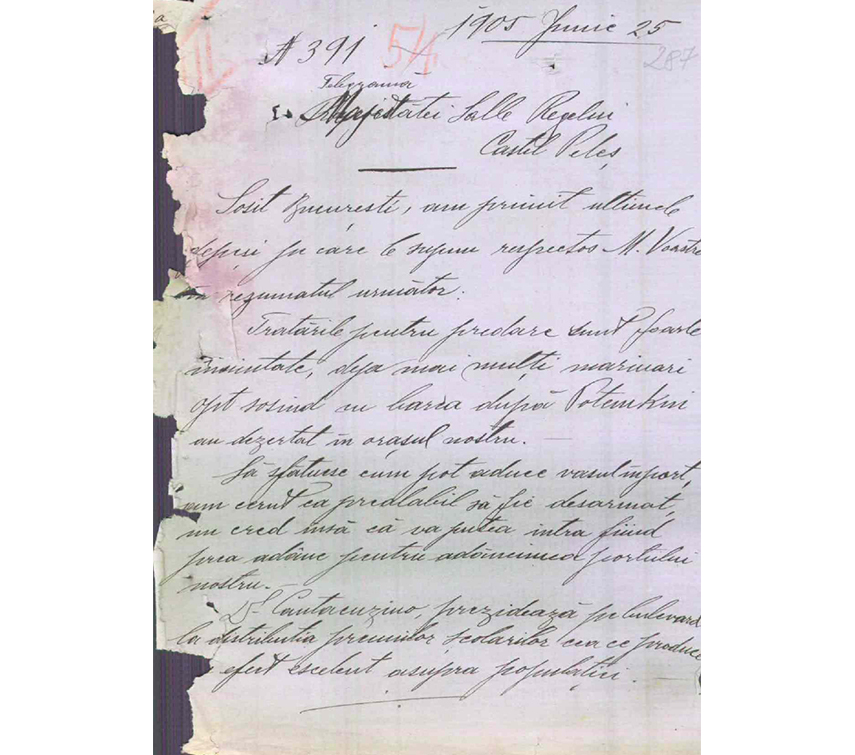 1905 Junie 25
N 391 54
287
Telegramă
Majestatei Salle Regelui
Castel Peleș
Sosit București, am primit ultimele
depeși pe care le supun respectos M. Voastre
în rezumatul următor:
Tratările pentru predare sunt foarte
înaintate, deja mai mulți marinari
opt sosind cu barca după Potemkin
au dezertat în orașul nostru.
Să sfătuesc cum pot aduce vasul în port,
am cerut ca prealabil să fie desarmat,
nu cred însă că va putea intra fiind
prea adânc pentru adâncimea portului
nostru.
Dl Cantacuzino, prezidează pe bulevard
la distribuția premiilor școlarilor ceea ce produce
efect escelent asupra populației.